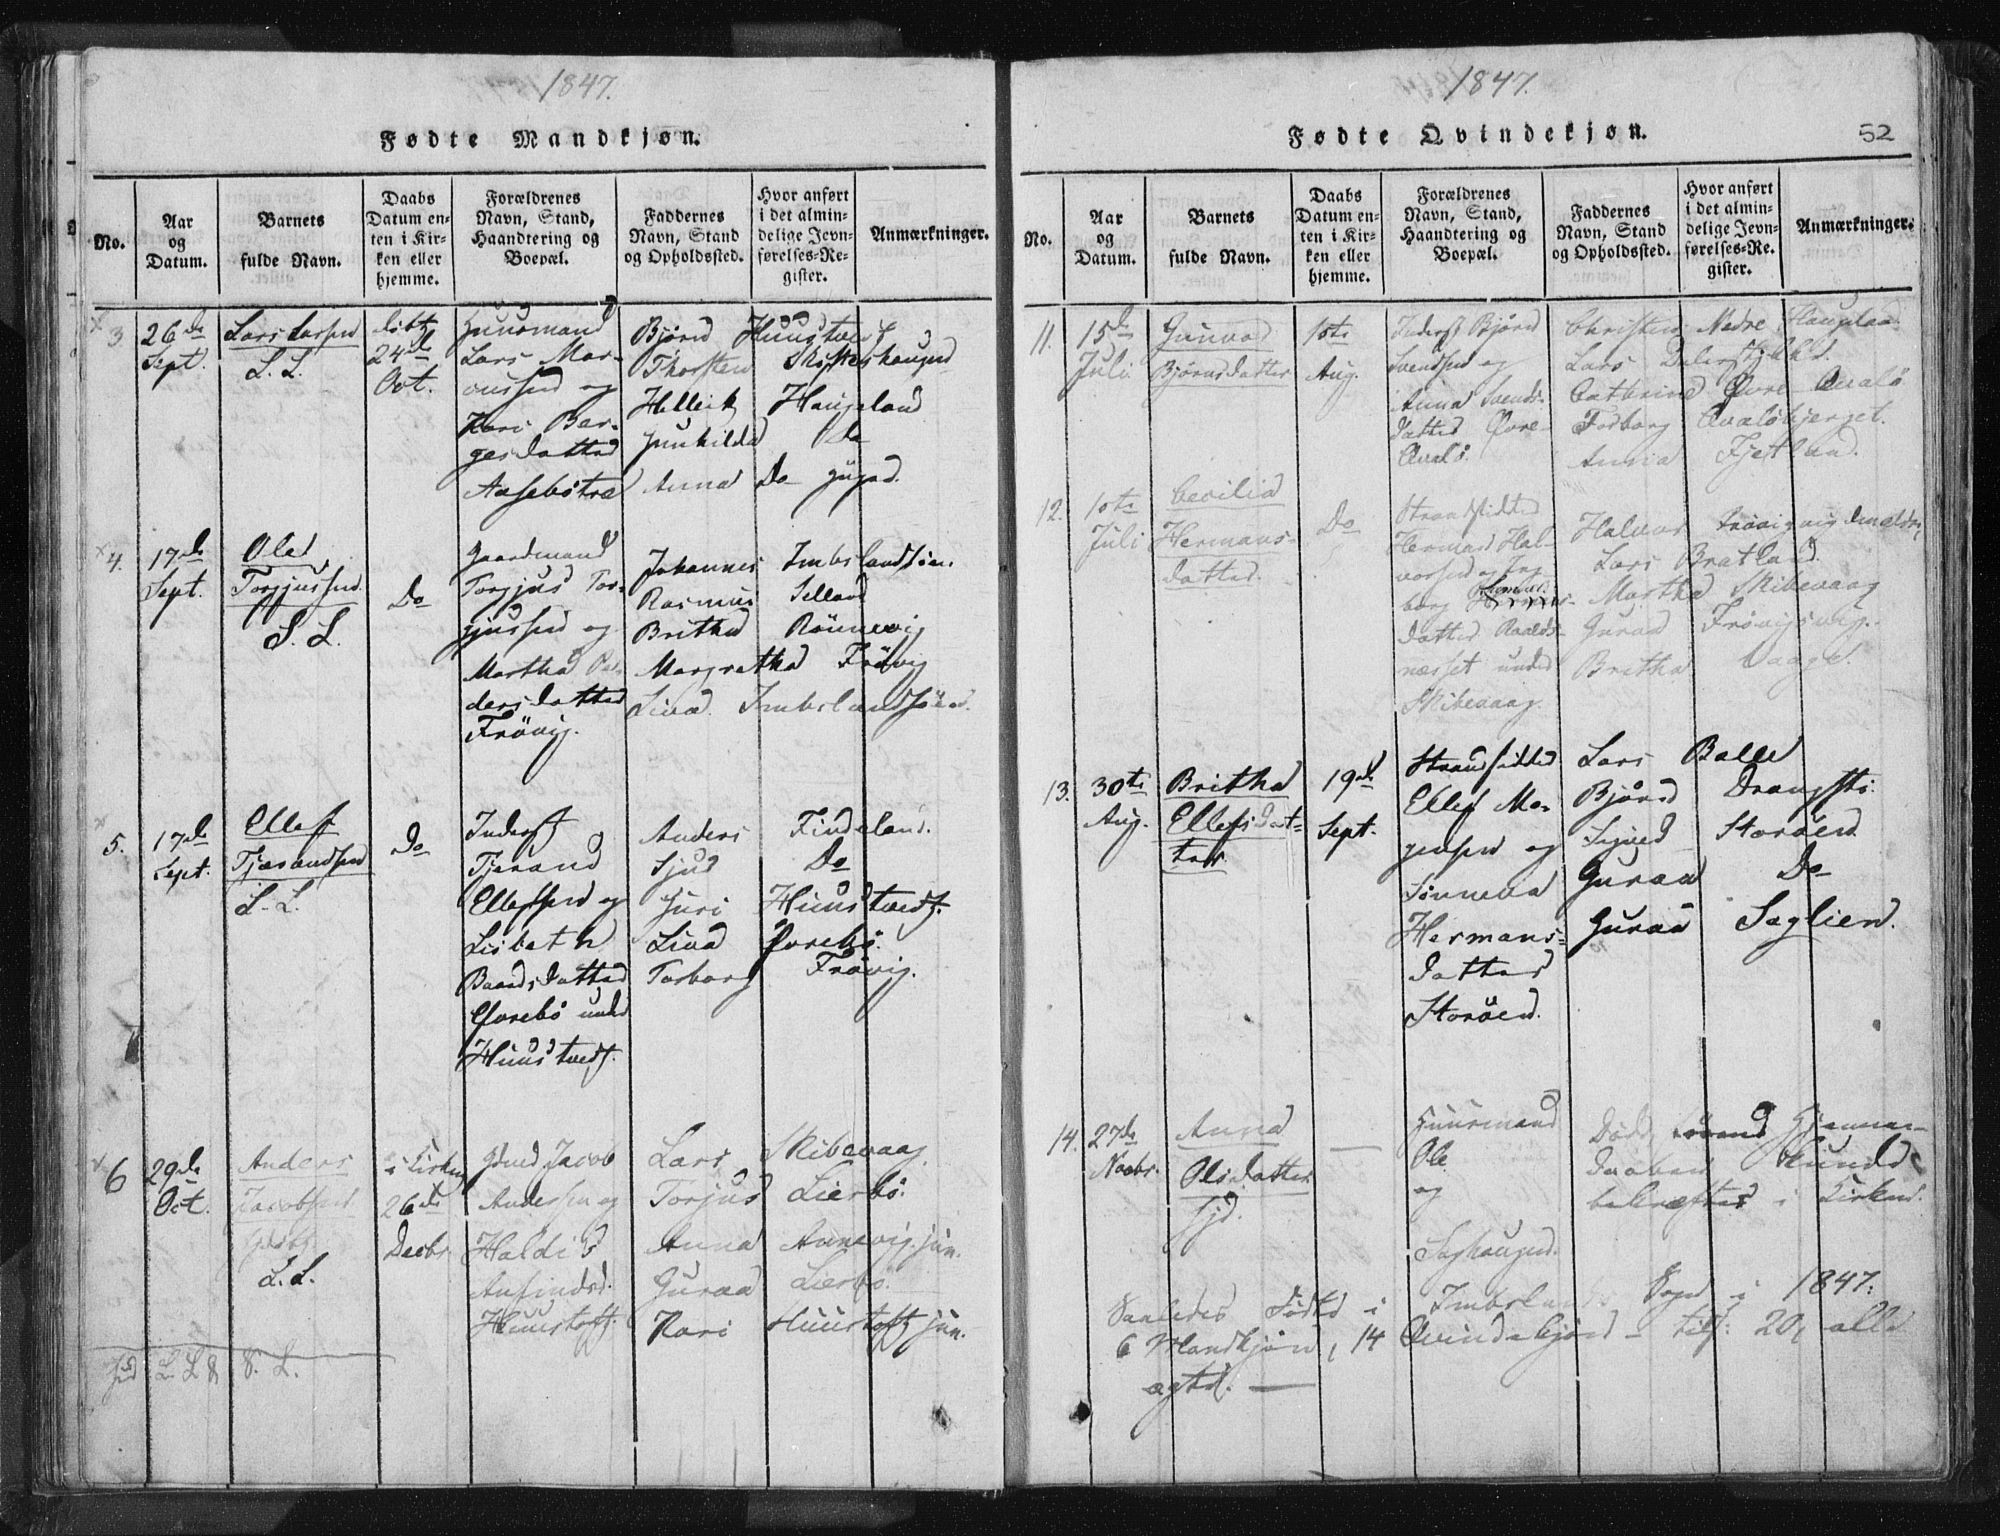 1847.
Fødte Mandkjøn.
No.
Aar
og
Datum.
Barnets
fulde Navn.
Daabs
Datum en-
ten i Kir-
ken eller
hjemme.
Forældrenes
Navn, Stand,
Haandtering og
Boepæl.
Faddernes
Navn, Stand
og Opholdssted.
Hvor anført
i det almin-
delige Jevn-
førelses-Re-
gister.
Anmærkninger.
3
26de
Sept.
Lars Larsen
L. L.
24de
Oct.
Huusmand
Lars Mar-
cussen og
Kari Bar-
gesdatter
Aasebøtræ
Bjørn Huustvedt
Thorsten
Helleik Haugeland
Gunhilda Do
Anna Do
4.
17de
Sept.
Ole
Torgjussen
S. L.
Do
Gaardmand
Torgjus Tor-
gjussen og
Martha
dersdatter
Frövig.
Johannes Imbslandsöen.
Rasmus Selland
Britha Rönnevig
Margretha Frövig
Siva Imbslandsöen.
5.
17de
Sept.
Ellef
Tjerandsen
L. L.
Do
Inderst
Tjerand
Ellefsen og
Lisbeth
Baardsdatter
Øvrebö under
Huustvedt.
Anders Findeland.
Sjur Do
Guri Huustvedt.
Siva Øvrebö.
Torborg Frövig.
6
29de
Oct.
Anders
Jacobsen
L. L.
i Kirken
26de
Decbr
Gmd Jacob
Andersen og
Haldis
Anfindsd.
Huustoft.
Lars Skibevaag.
Torjus Lierbö.
Anna Annevig. jun.
Guraa Lierbö.
Kari Huustoft jun.
L. L & S. L.
1847.
Fødte Qvindekjøn.
52
No.
Aar
og
Datum.
Barnets
fulde Navn.
Daabs
Datum en-
ten i Kir-
ken eller
hjemme.
Forældrenes
Navn, Stand,
Haandtering og
Boepæl.
Faddernes
Navn, Stand
og Opholdssted.
Hvor anført
i det almin-
delige Jevn-
førelses-Re-
gister.
Anmærkninger.
11.
15de
Juli
Gunvor
Bjørnsdatter
1ste
Aug.
Inderst Bjørn
Svendsen og
Anna Svends-
datter Øvre-
Qvalö.
Christen Nedre
Lars
Cathrina Øvre Qvalö
Torborg Qvalöbjerget.
Anna Fjetland.
12.
1ste
Juli
Cecilia
Hermans-
datter.
Do
Strandsidder
Herman Hal-
vorsen og Ing-
borg
datter
næsset under
Skibevaag.
Halvor
Lars Bratland.
Martha Skibevaag
Guraa Frövigsvaag.
Britha Vaage.
13.
30te
Aug.
Britha
Ellefsdat-
ter
19de
Sept.
Strandsidder
Ellef Mo-
gensen og
Sünneva
Hermans-
datter
Storöen.
Lars Balle
Bjørn
Storöen
Guraa Do
Guraa Saglien.
14.
27de
Novbr.
Anna
Olsdatter
—
Huusmand
Ole
og
Saghaugen.
Død. Hjemme-
daaben kunde
bekræftes i Kirken.
Saaledes Födte i Imbslands Sogn i 1847:
6 Mandkjön, 14 Qvindekjön - tils: 20, alle
ægte. —